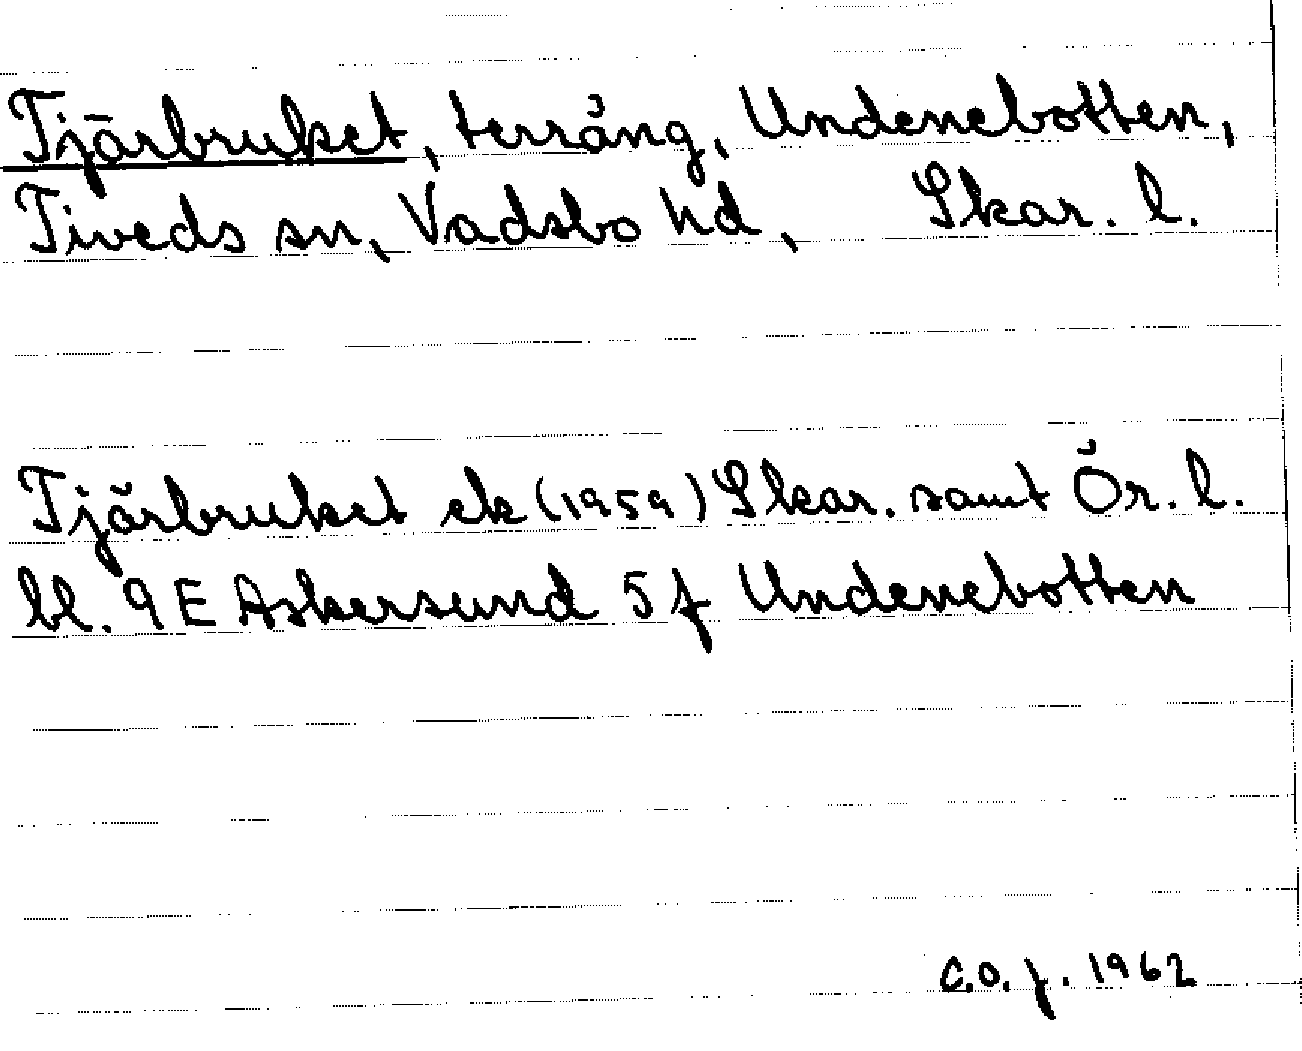 Tjärbruket, terräng, Undenebotten,
Tiveds sn, Vadsbo hd, Skar. l.
Tjärbruket ek (1959) Skar. samt Ör. l.
bl. 9E Askersund 5f Undenebotten
C.O.f. 1962